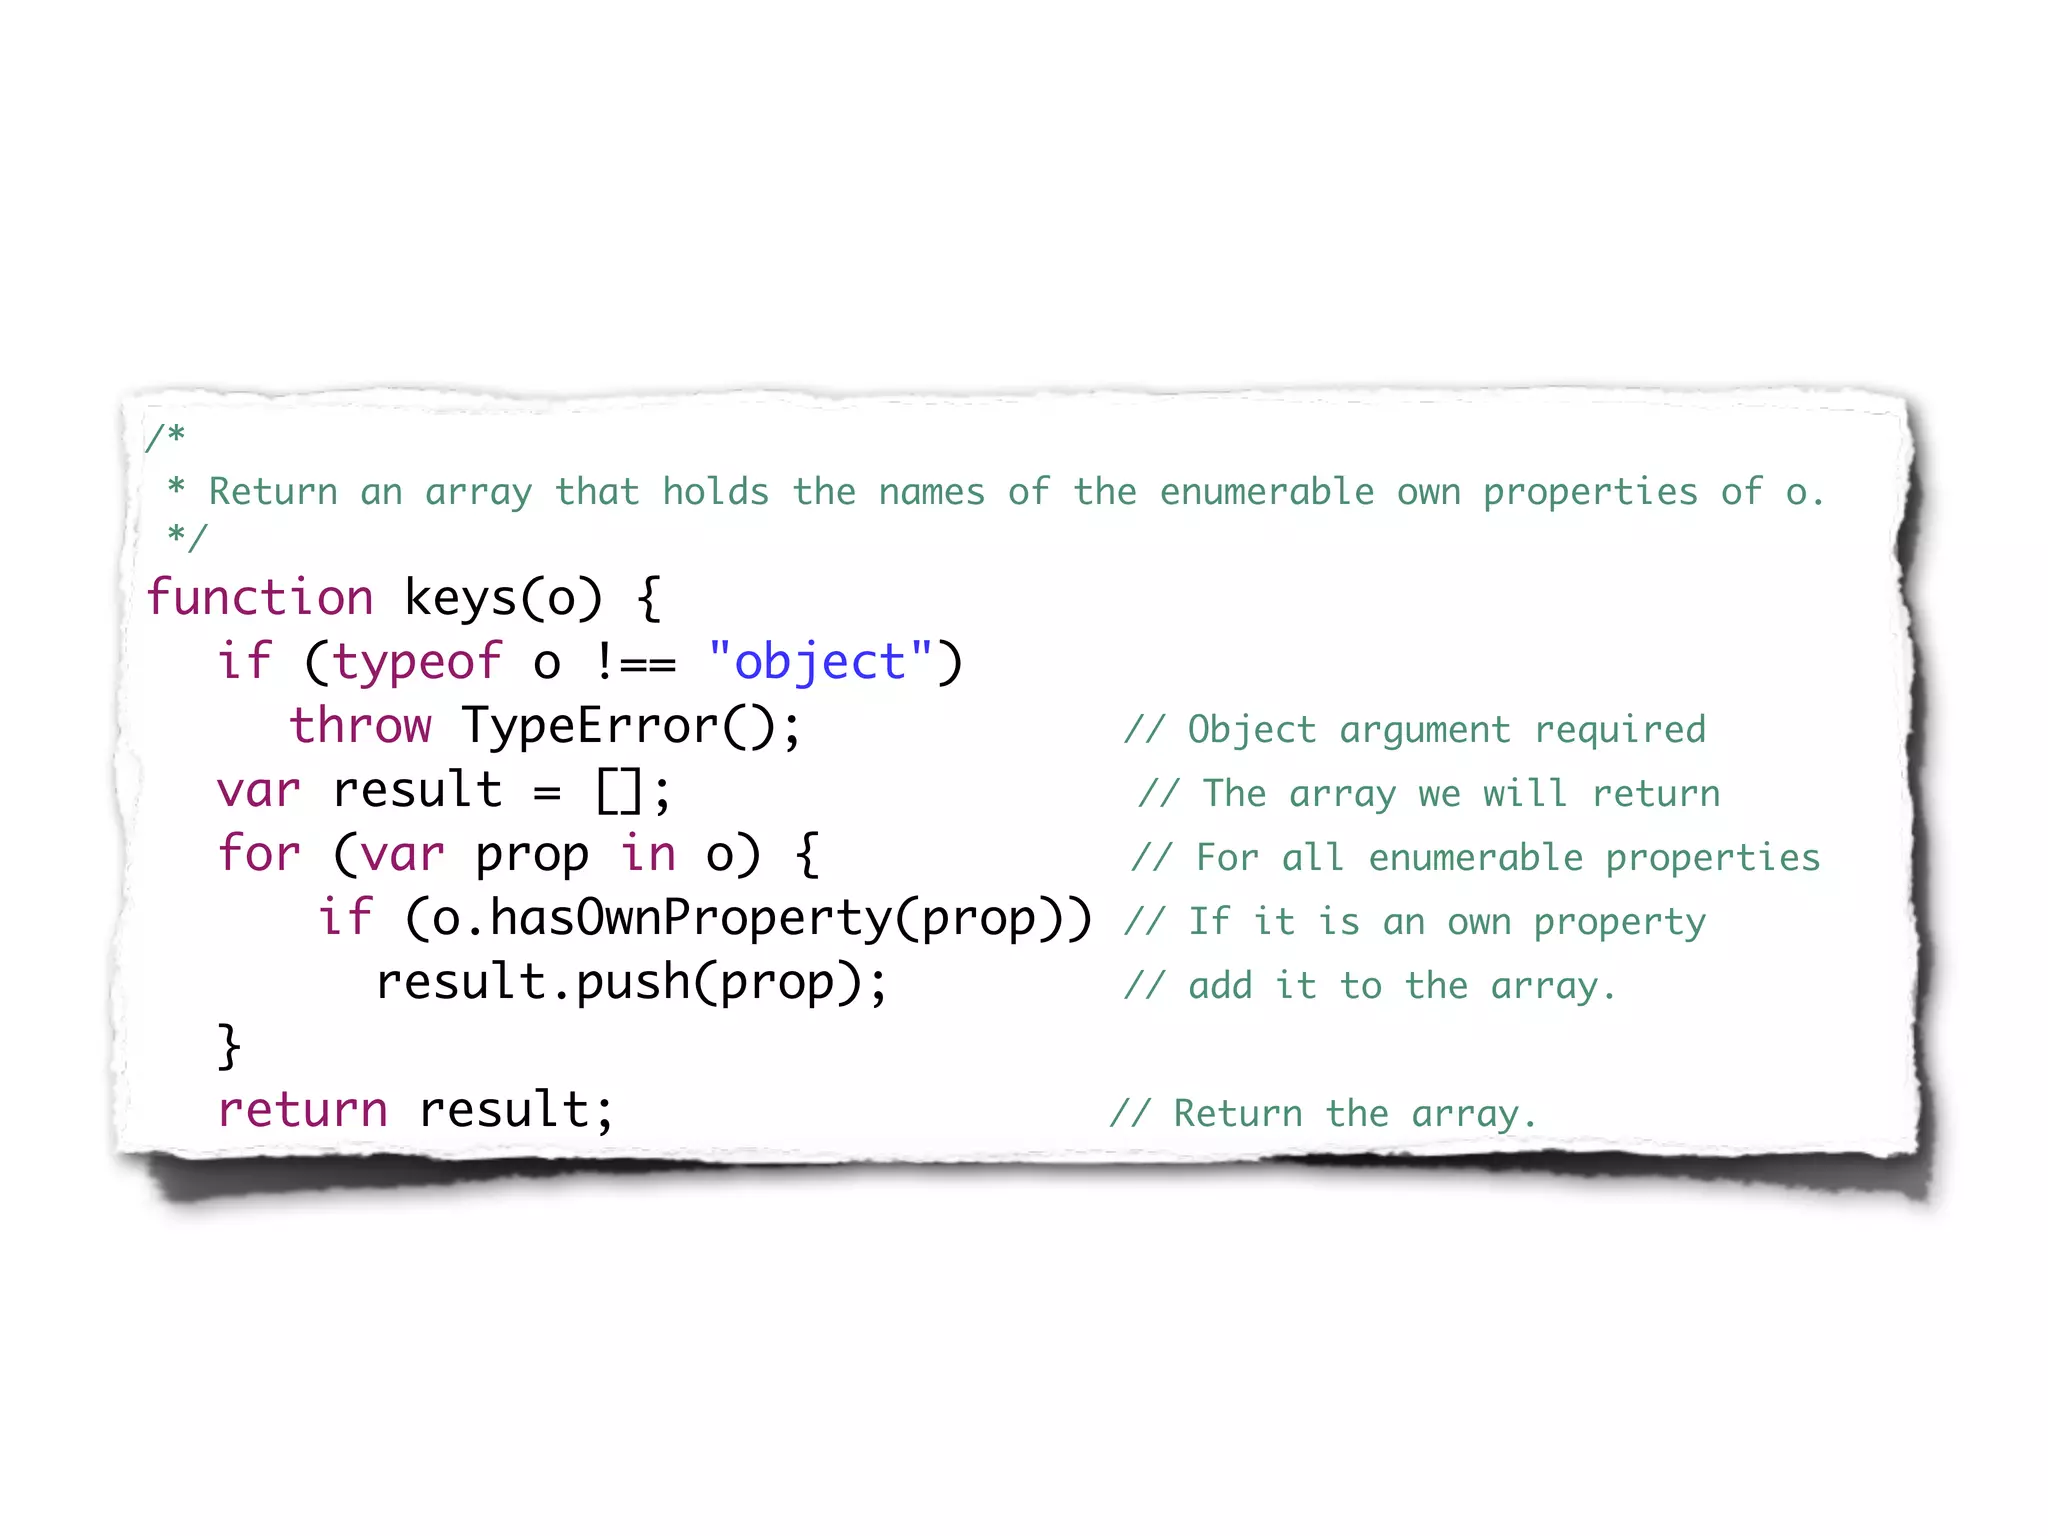 /*
 * Return an array that holds the names of the enumerable own properties of o.
 */
function keys(o) {
   if (typeof o !== "object")
      throw TypeError(); // Object argument required
   var result = []; // The array we will return
   for (var prop in o) { // For all enumerable properties
       if (o.hasOwnProperty(prop)) // If it is an own property
         result.push(prop); // add it to the array.
   }
   return result; // Return the array.